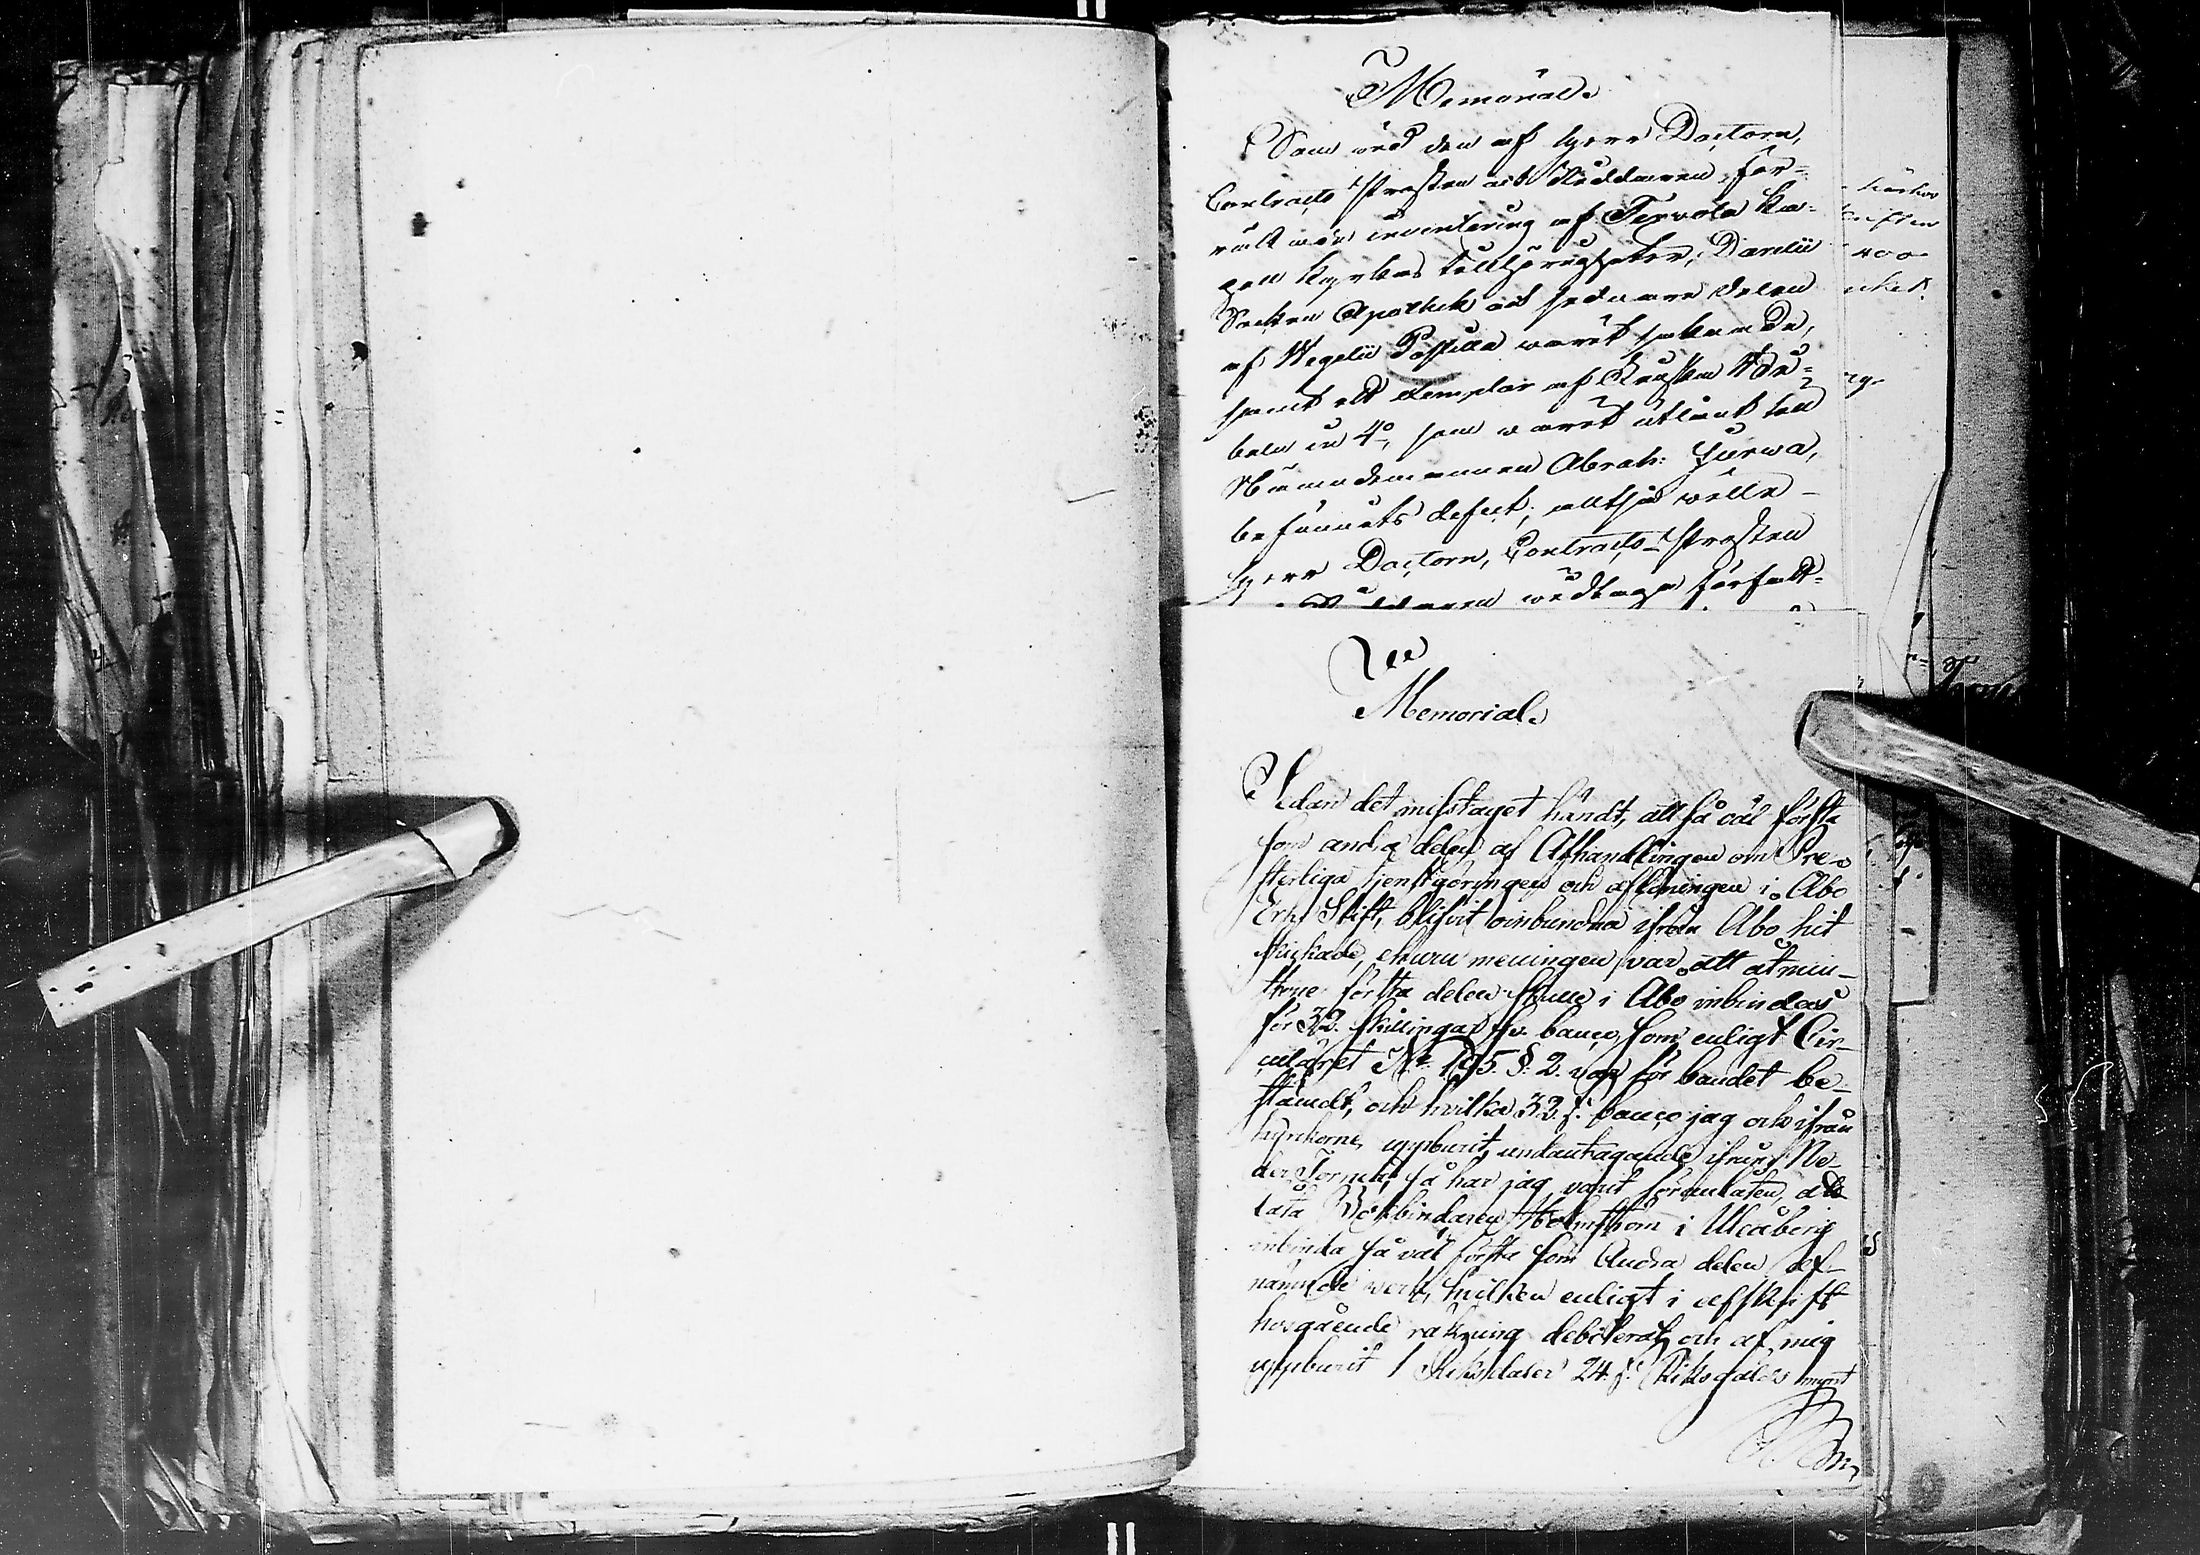 Memorial.
Som wid den af Herr Doctorn,
Contracts Prosten och Riddaren för-
rätt inventering af Terwola Ka-
pell Kyrkas tillhörigheter, Darelii
Sockn Apothek och sednare delen
af Wegelii Postilla warit saknade,
samt ett exemplar af Finska Bi-
beln in 4º, som warit utlånt till
Nämndemannen Abrah:
befunnits defect; alltså wille
Herr Doctorn, Contracts-Prosten
wedtaga författ-
Memorial.
Sedan det misstaget händt, att så väl första
som andra delen af Afhandlingen om Pre-
sterliga tjenstgöringen och aflöningen i Åbo
Erke Stift, blifvit oinbundna ifrån Åbo hit
skickade, ehuru meningen var att åtmin-
stone första delen skulle i Åbo inbindas
för 32. skillingar sv. banco, som enligt Cir-
culäret Nº 195. §. 2. var för bandet be-
stämdt, och hvilka 32 s. banco jag och ifrån
kyrkorne uppburit, undantagande ifrån Ne-
der Torneå, så har jag varit föranlåten, att
låta Bokbindaren Holmström i Uleåborg
inbinda så väl första som Andra delen af
nämnde verk, hvilken enligt i afskrift
hosgående räkning debiterat och af mig
uppburit 1 Riksdaler 24. s. Riksgälds mynt